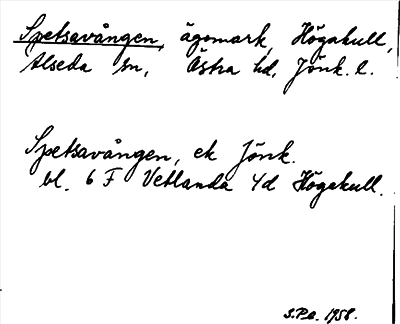 Spetsavången, ägomark, Högakull,
Alseda sn, Östra hd, Jönk. l.
Spetsavången, ek Jönk.
bl. 6 F Vetlanda 4d Högakull.
S.Pn. 1958.